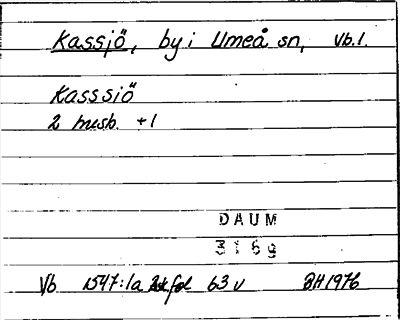 Kassjö, by i Umeå sn, Vb.l.
Kasssiö
2 husb. +1
DAUM
3169
Vb 1547:1a fol 63 v BH 1976